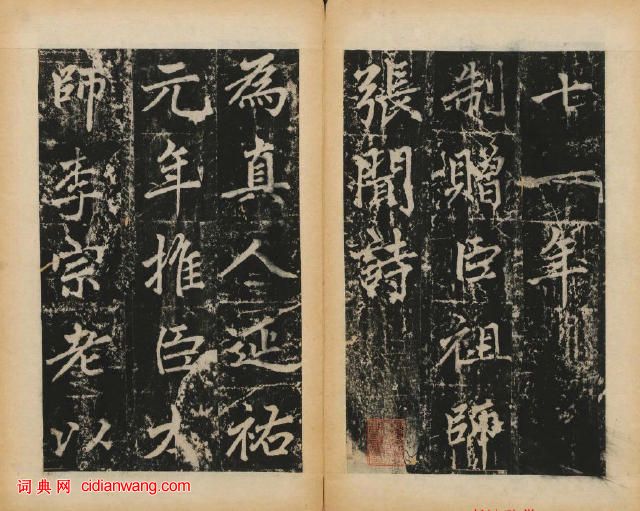 十一年
制贈臣祖師
張聞詩
為真人延祐
元年推臣太
師李宗老以
词典网 cidianwang.com